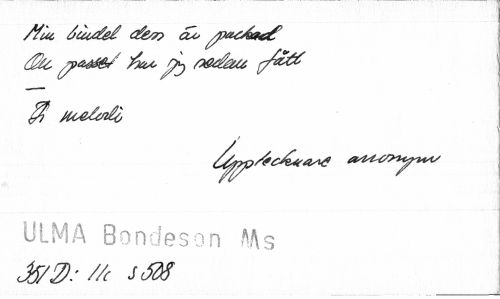 Min bindel den är packad
Och passet har jag redan fått
—
Ej melodi
Upptecknare anonym
ULMA Bondeson Ms
351 D: 11c s 508